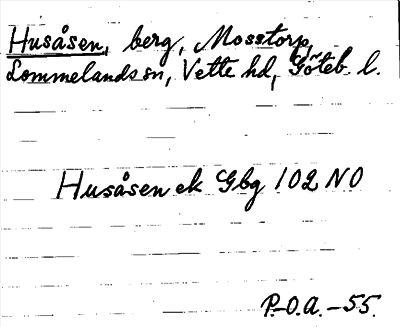 Husåsen, berg, Mosstorp,
Lommelands sn, Vette hd, Göteb. l.
Husåsen ek Gbg 102 NO
P.-O.A. -55.